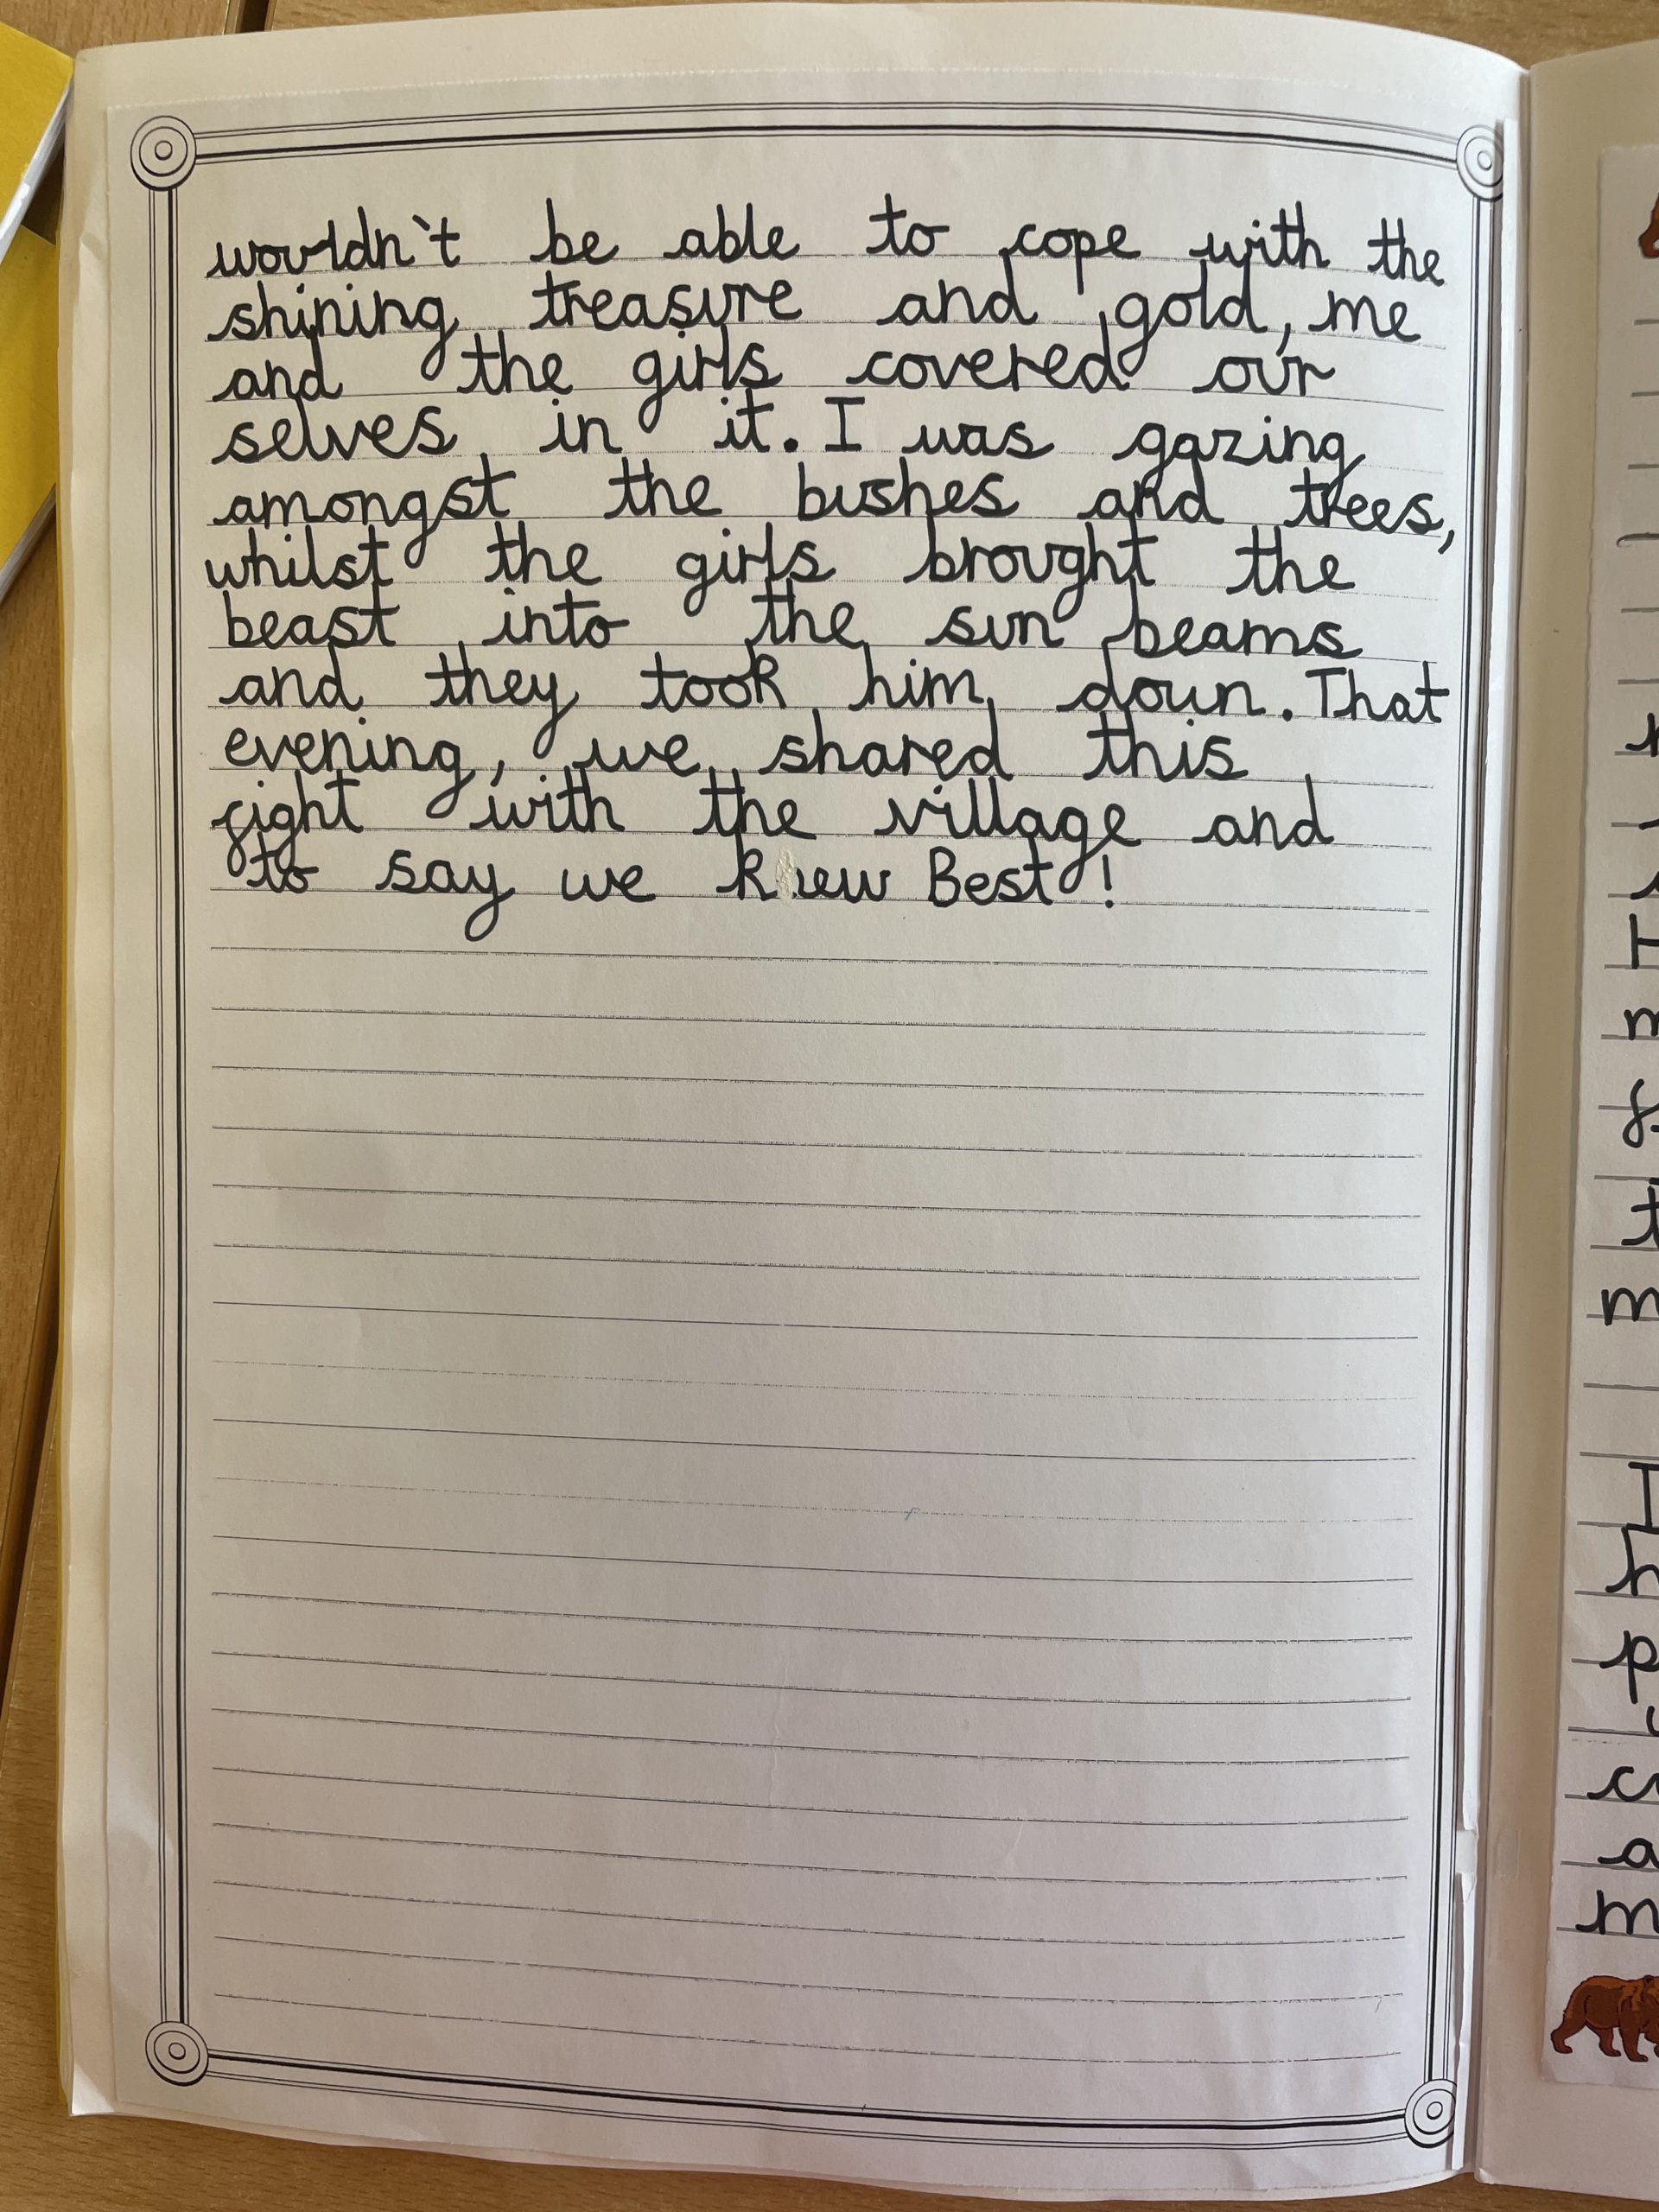 wouldn't be able to cope with the
shining treasure and gold, me
and the girls covered our
selves in it. I was gazing
amongst the bushes and trees,
whilst the girls brought the
beast into the sun beams
and they took him down. That
evening, we shared this
fight with the village and
to say we knew Best!